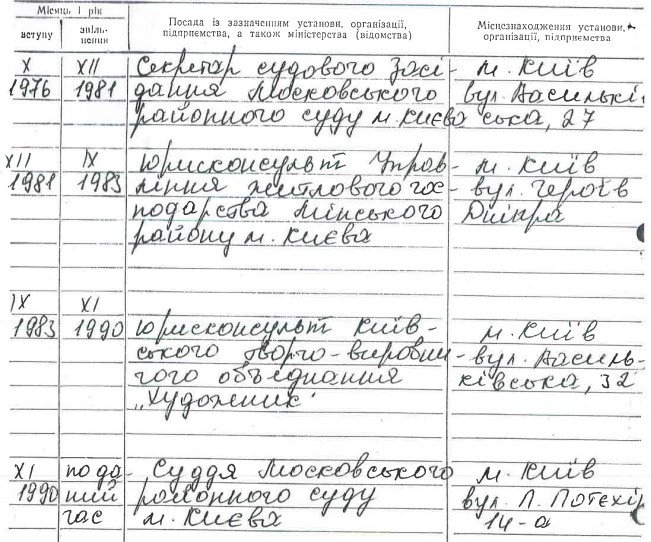 Місяць і рік
вступу
звіль-
нення
Посада із зазначенням установи, організації,
підприємства, а також міністерства (відомства)
Місцезнаходження установи,
організації, підприємства
X
1976
XII
1981
Секретар судового засі-
дання Московського
районного суду м. Києва
м. Київ
вул. Васильків
ська, 27
XII
1981
IX
1983
Юрисконсульт Управ-
ління житлового гос-
подарства Мінського
району м. Києва
м. Київ
вул. Героїв
Дніпра
IX
1983
XI
1990
Юрисконсульт Київ-
ського творчо-виробни-
чого об'єднання
"Художник"
м. Київ
вул. Василь-
ківська, 32
XI
1990
по да-
ний
час
Суддя Московського
районного суду
м. Києва
м. Київ
вул. П. Потехі
14-а